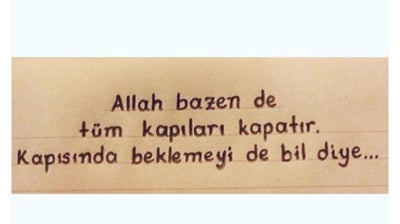 Allah bazen de
tüm kapıları kapatır.
Kapısında beklemeyi de bil diye...